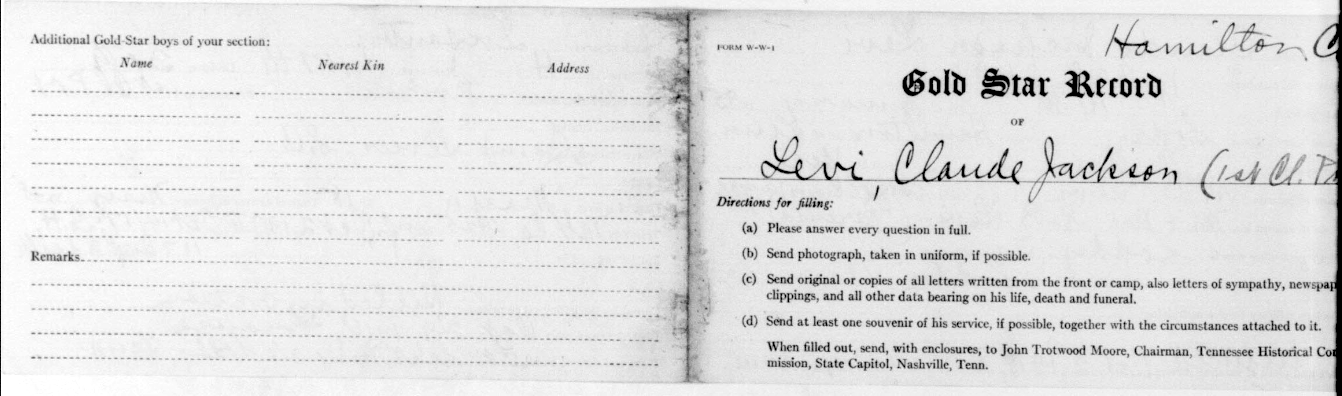 Additional Gold-Star boys of your section:
Name Nearest Kin Address
Remarks.
FORM W-W-1
Hamilton C
Gold Star Record
OF
Levi, Claude Jackson (1st Cl. P
Directions for filling:
(a) Please answer every question in full.
(b) Send photograph, taken in uniform, if possible.
(c) Send original or copies of all letters written from the front or camp, also letters of sympathy, newspap
clippings, and all other data bearing on his life, death and funeral.
(d) Send at least one souvenir of his service, if possible, together with the circumstances attached to it.
When filled out, send, with enclosures, to John Trotwood Moore, Chairman, Tennessee Historical Co
mission, State Capitol, Nashville, Tenn.